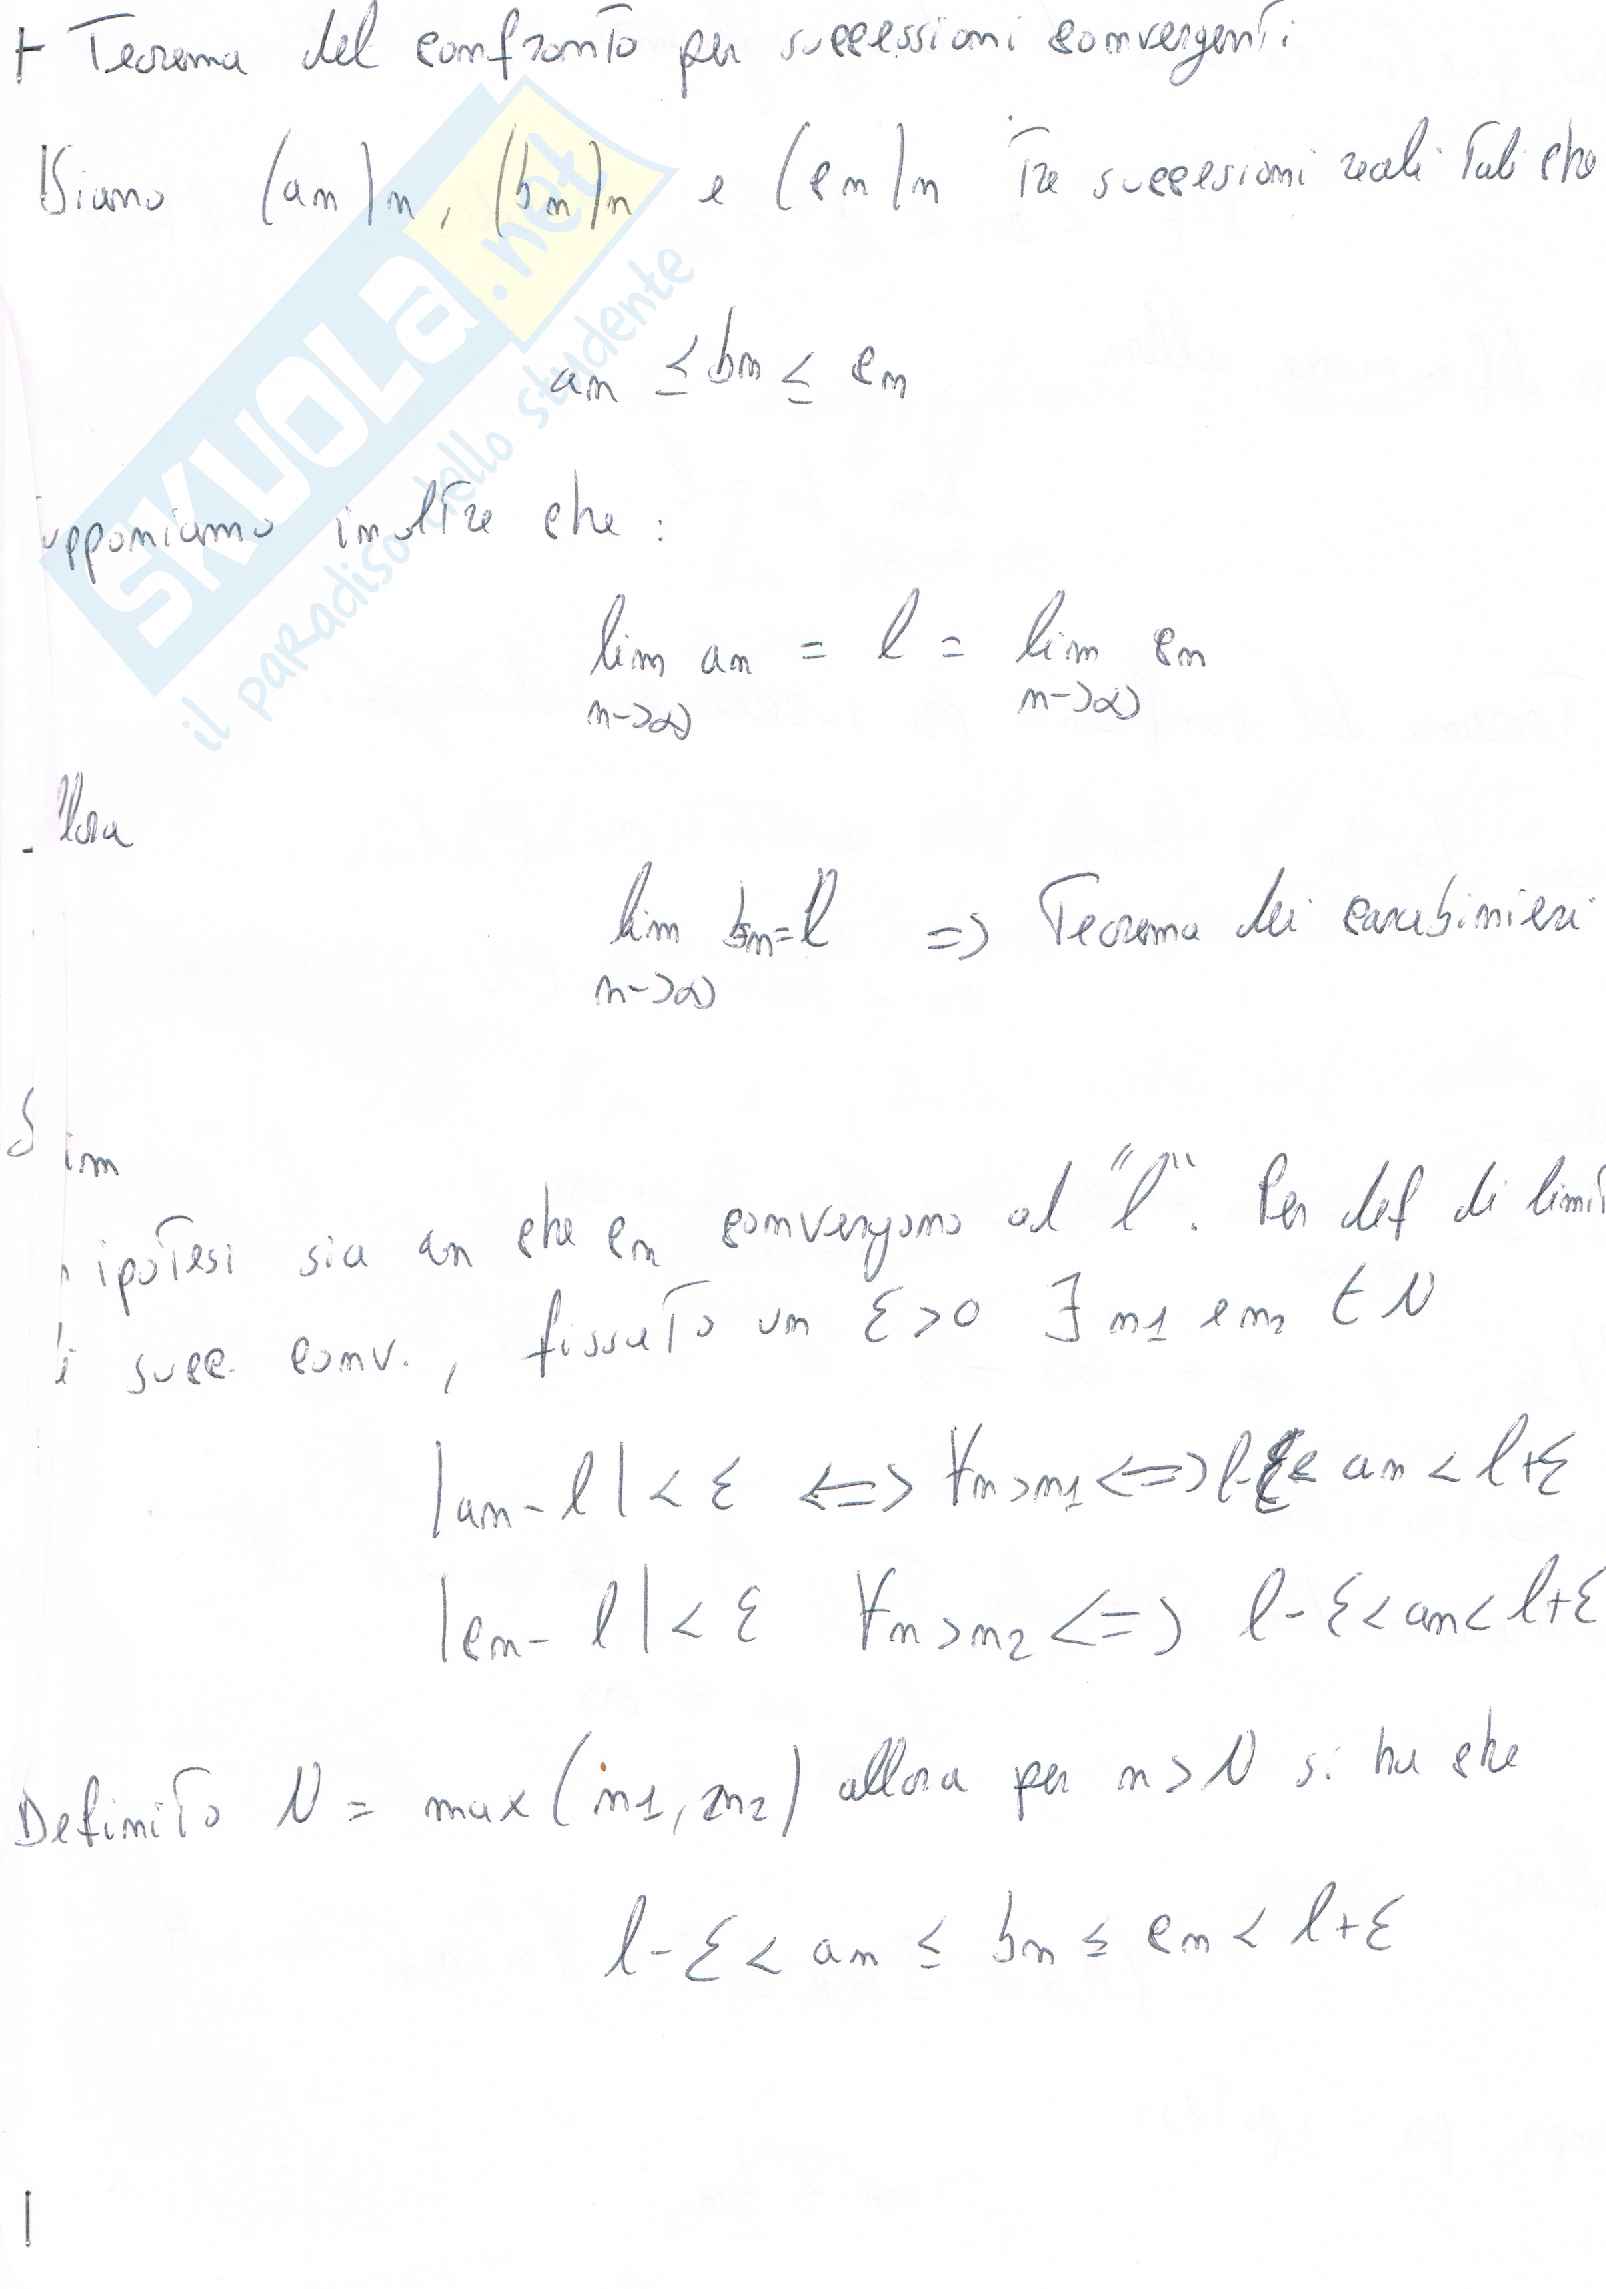 + Teorema del confronto per successioni convergenti
Siano (an)n, (bn)n e (cn)n Tre succesioni reali Tali che
an ≤ bn ≤ cn
upponiamo inoltre che :
lim an = l = lim cn
n->∞ n->∞
llora
lim bn = l => Teorema dei carabinieri
n->∞
Dim
ipotesi sia an che cn convergono ad "l". Per def di limit
di succ. conv. , fissato un ε>0 ∃ n1 e n2 ∈ N
|an - l| < ε <=> ∀n>n1 <=> l-ε< an < l+ε
|cn - l| < ε ∀n>n2 <=> l-ε<an< l+ε
Definito N = max (n1, n2) allora per n>N si ha che
l-ε < an ≤ bn ≤ cn < l+ε
SKUOLA.net
il paradiso dello studente